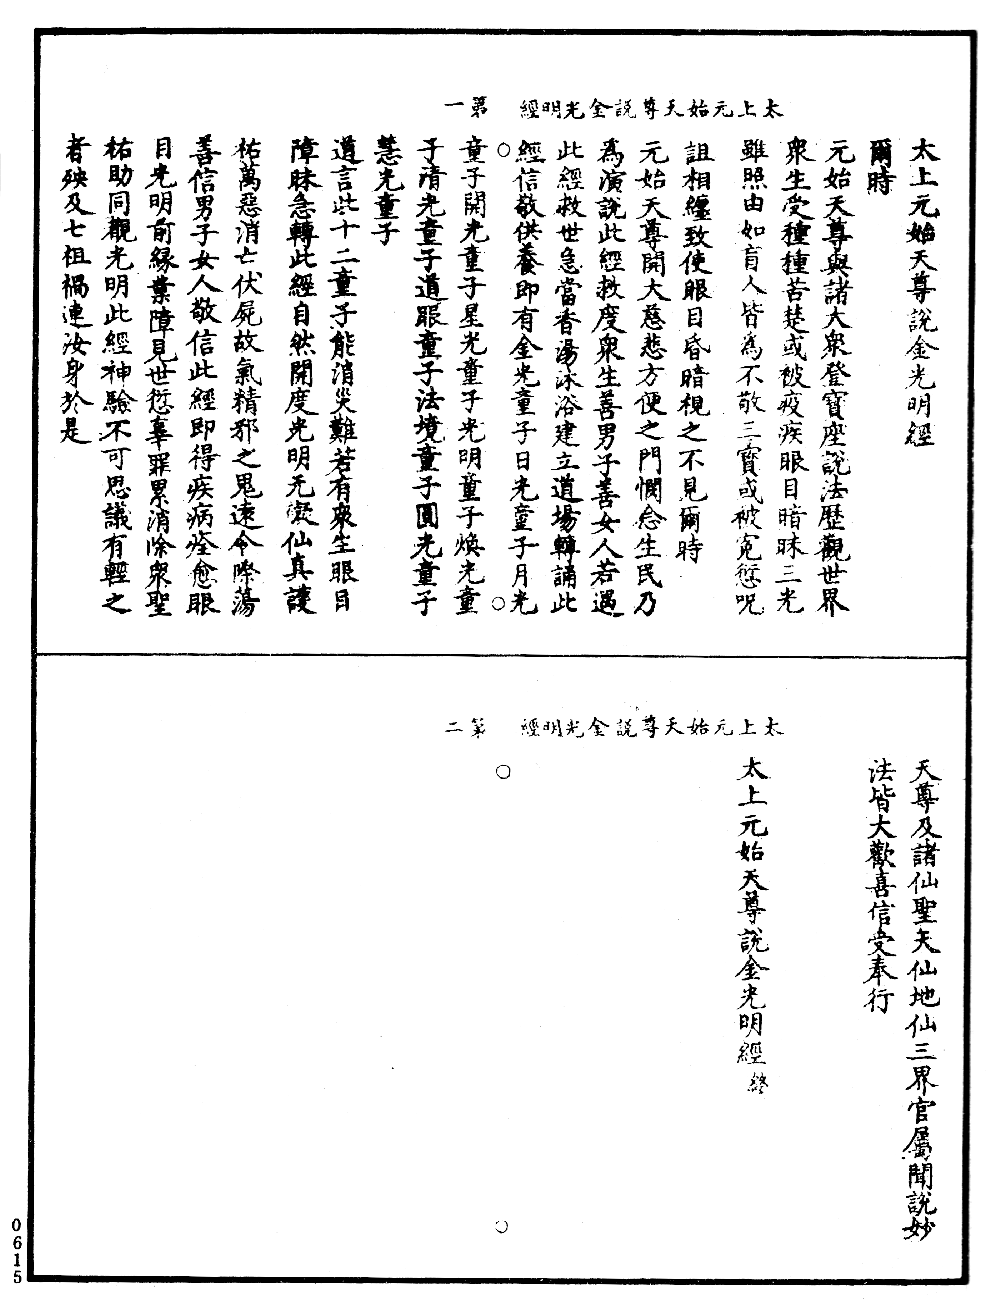 太上元始天尊說金光明經　第一
太上元始天尊說金光明經
爾時
元始天尊與諸大衆登寶座說法歷觀世界
衆生受種種苦楚或被疫疾眼目暗昧三光
雖照由如盲人皆為不敬三寶或被寃愆呪
詛相纏致使眼目昏暗視之不見爾時
元始天尊開大慈悲方便之門憫念生民乃
為演說此經救度衆生善男子善女人若遇
此經救世急當香湯沐浴建立道場轉誦此
經信敬供養即有金光童子日光童子月光
童子開光童子星光童子光明童子煥光童
子清光童子道眼童子法境童子圓光童子
慧光童子
道言此十二童子能消災難若有衆生眼目
障昧急轉此經自然開度光明无礙仙真護
祐萬惡消亡伏屍故氣精邪之鬼遠令除蕩
善信男子女人敬信此經即得疾病痊愈眼
目光明前緣業障見世愆辜罪累消除衆聖
祐助同觀光明此經神驗不可思議有輕之
者殃及七祖禍連汝身於是
太上元始天尊說金光明經　第二
天尊及諸仙聖天仙地仙三界官屬聞說妙
法皆大歡喜信受奉行
太上元始天尊說金光明經終
0615